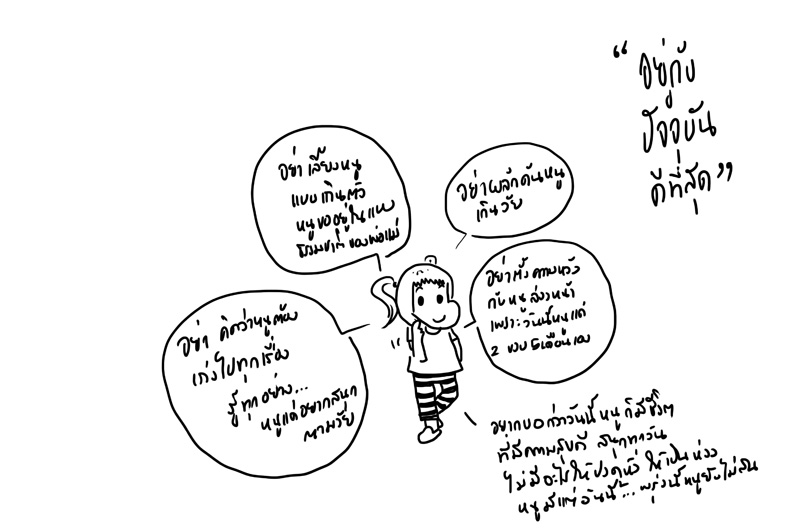 “อยู่กับ
ปัจจุบัน
ดีที่สุด”
อย่าเลี้ยงหนู
แบบเกินตัว
หนูขออยู่ในแบบ
ธรรมชาติของพ่อแม่
อย่าผลักดันหนู
เกินวัย
อย่าตั้งความหวัง
กับหนูล่วงหน้า
เพราะวันนี้หนูแค่
2 ขวบ 5 เดือนเอง
อย่า คิดว่าหนูต้อง
เก่งไปทุกเรื่อง
รู้ทุกอย่าง...
หนูแค่อยากสนุก
ตามวัย
อยากบอกว่าวันนี้หนูก็มีชีวิต
ที่มีความสุขดี สนุกทุกวัน
ไม่มีอะไรให้ ให้เป็นห่วง
หนูมีแค่วันนี้... พรุ่งนี้หนูยังไม่สน